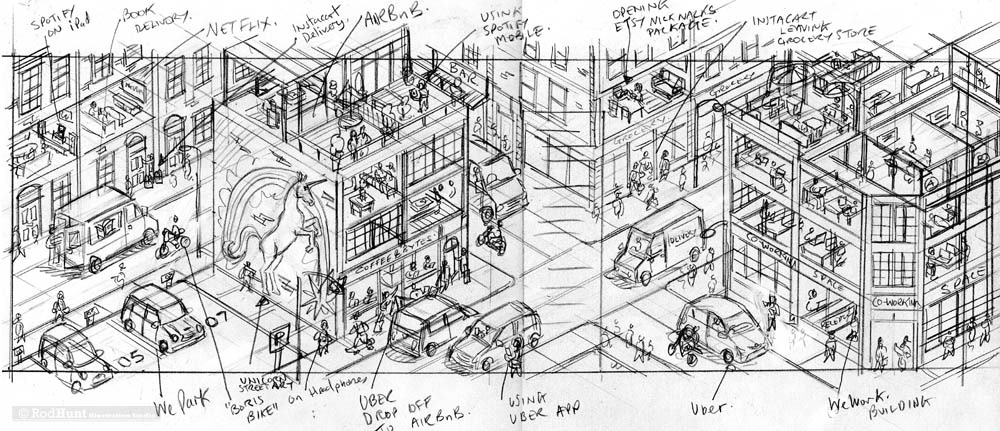 SPOTIFY
ON iPad
BOOK
DELIVERY.
NETFLIX.
Instacart
Delivery.
AIRBnB.
USING
SPOTIFY
MOBILE.
OPENING
ETSY NICK NACKS
PACKAGE.
INSTACART
LEAVING
GROCERY STORE
BAR
GROCERY
GROCERY
COFFEE BYTES
CO-WORKING SPACE
CO-WORKING
SPACE
07
05
P
We Park
UNICORN
STREET ART
"BORIS
BIKE"
on Headphones
UBER
DROP OFF
TO AIRBnB.
USING
UBER APP
Uber.
WeWork.
BUILDING
© RodHunt